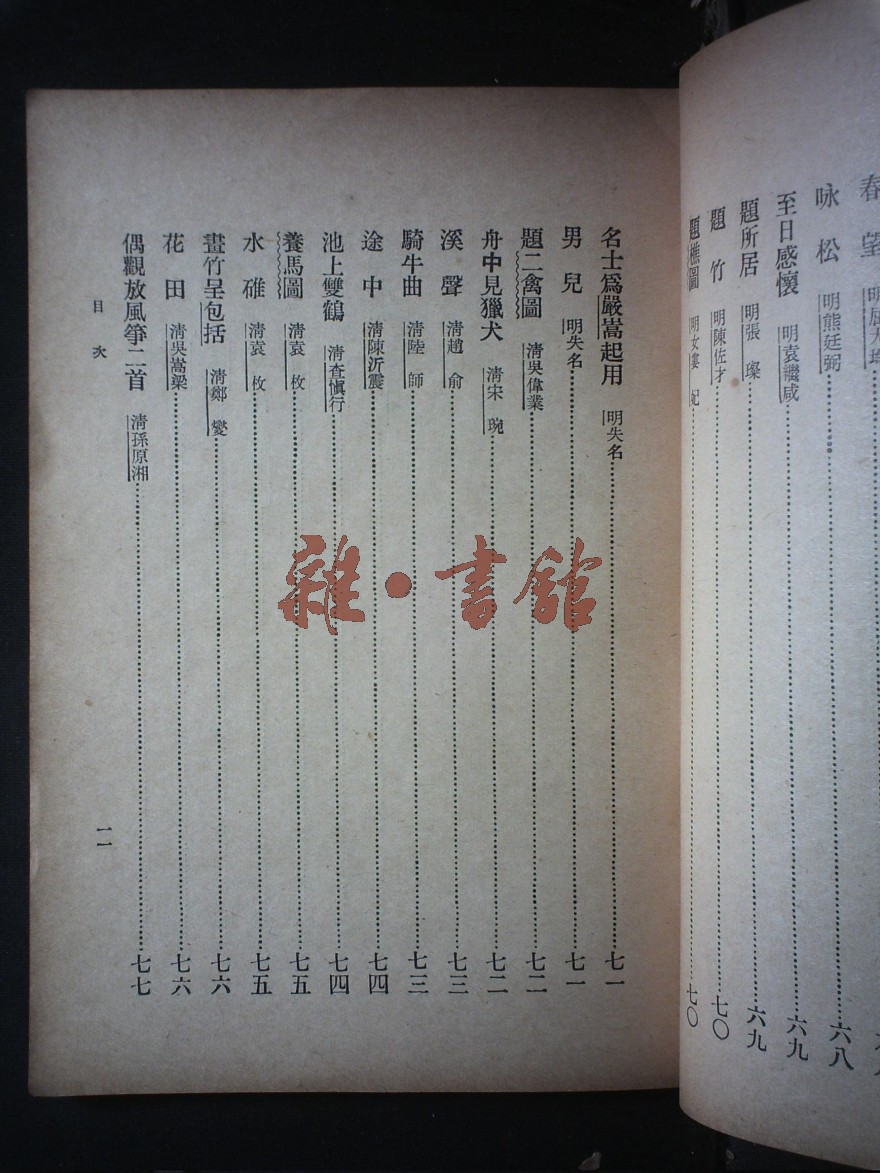 春望 明屈大均
咏松 明熊廷弼 六八
至日感懷 明袁繼咸 六九
題所居 明張璨 六九
題竹 明陳佐才 七〇
題樵圖 明女婁妃 七〇
名士爲嚴嵩起用 明失名 七一
男兒 明失名 七一
題二禽圖 清吳偉業 七二
舟中見獵犬 清宋琬 七二
溪聲 清趙俞 七三
騎牛曲 清陸師 七三
途中 清陳沂震 七四
池上雙鶴 清查愼行 七四
養馬圖 清袁枚 七五
水碓 清袁枚 七五
畫竹呈包括 清鄭燮 七六
花田 清吳嵩梁 七六
偶觀放風箏二首 清孫原湘 七七
目次
一一
雜·書館